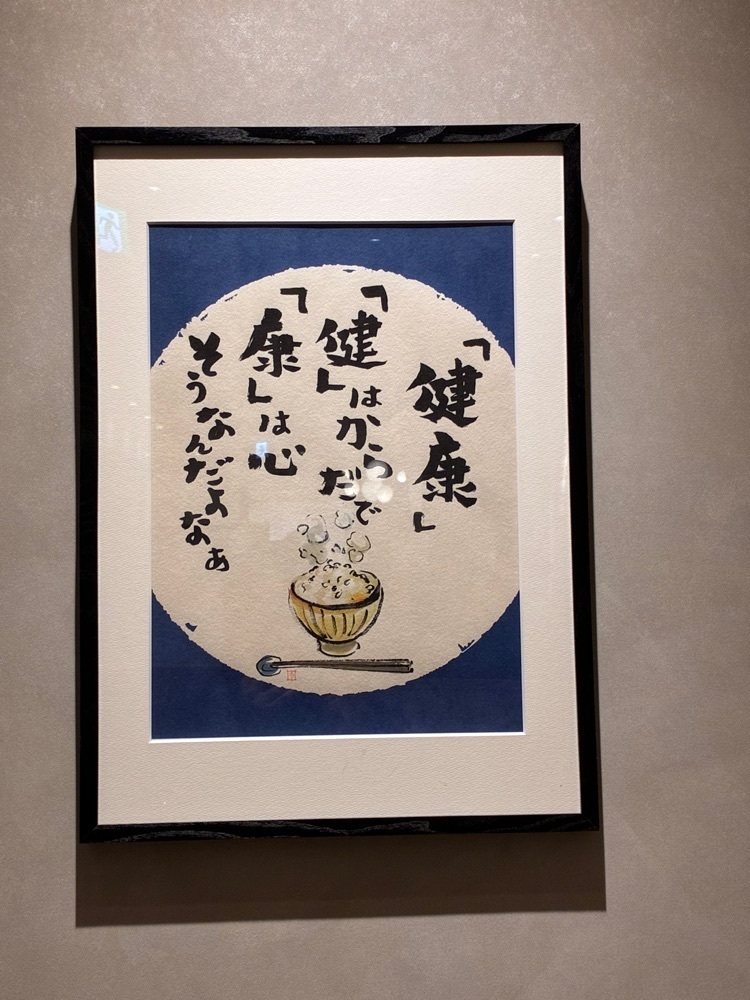 「健康」
「健」はからだで
「康」は心
そうなんだよなぁ